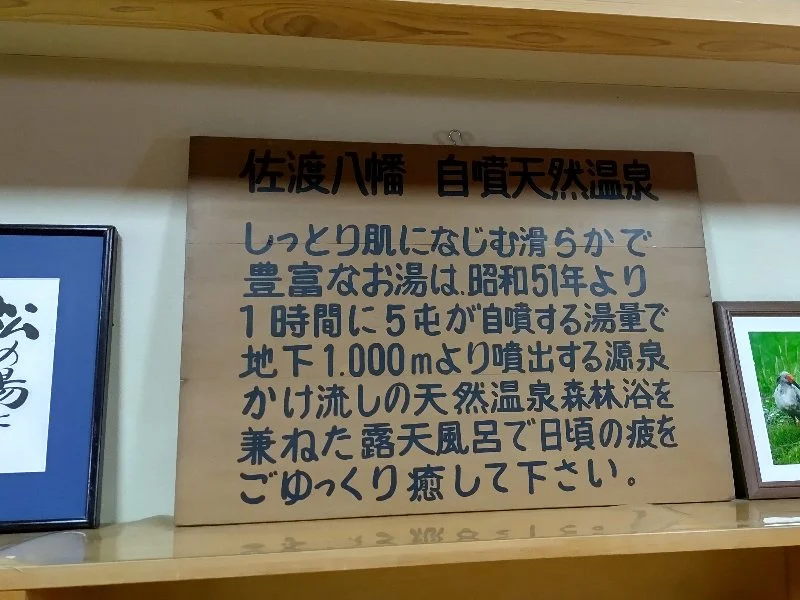 佐渡八幡 自噴天然温泉
しっとり肌になじむ滑らかで
豊富なお湯は、昭和51年より
1時間に5屯が自噴する湯量で
地下1.000mより噴出する源泉
かけ流しの天然温泉森林浴を
兼ねた露天風呂で日頃の疲を
ごゆっくり癒して下さい。
松
の湯
に